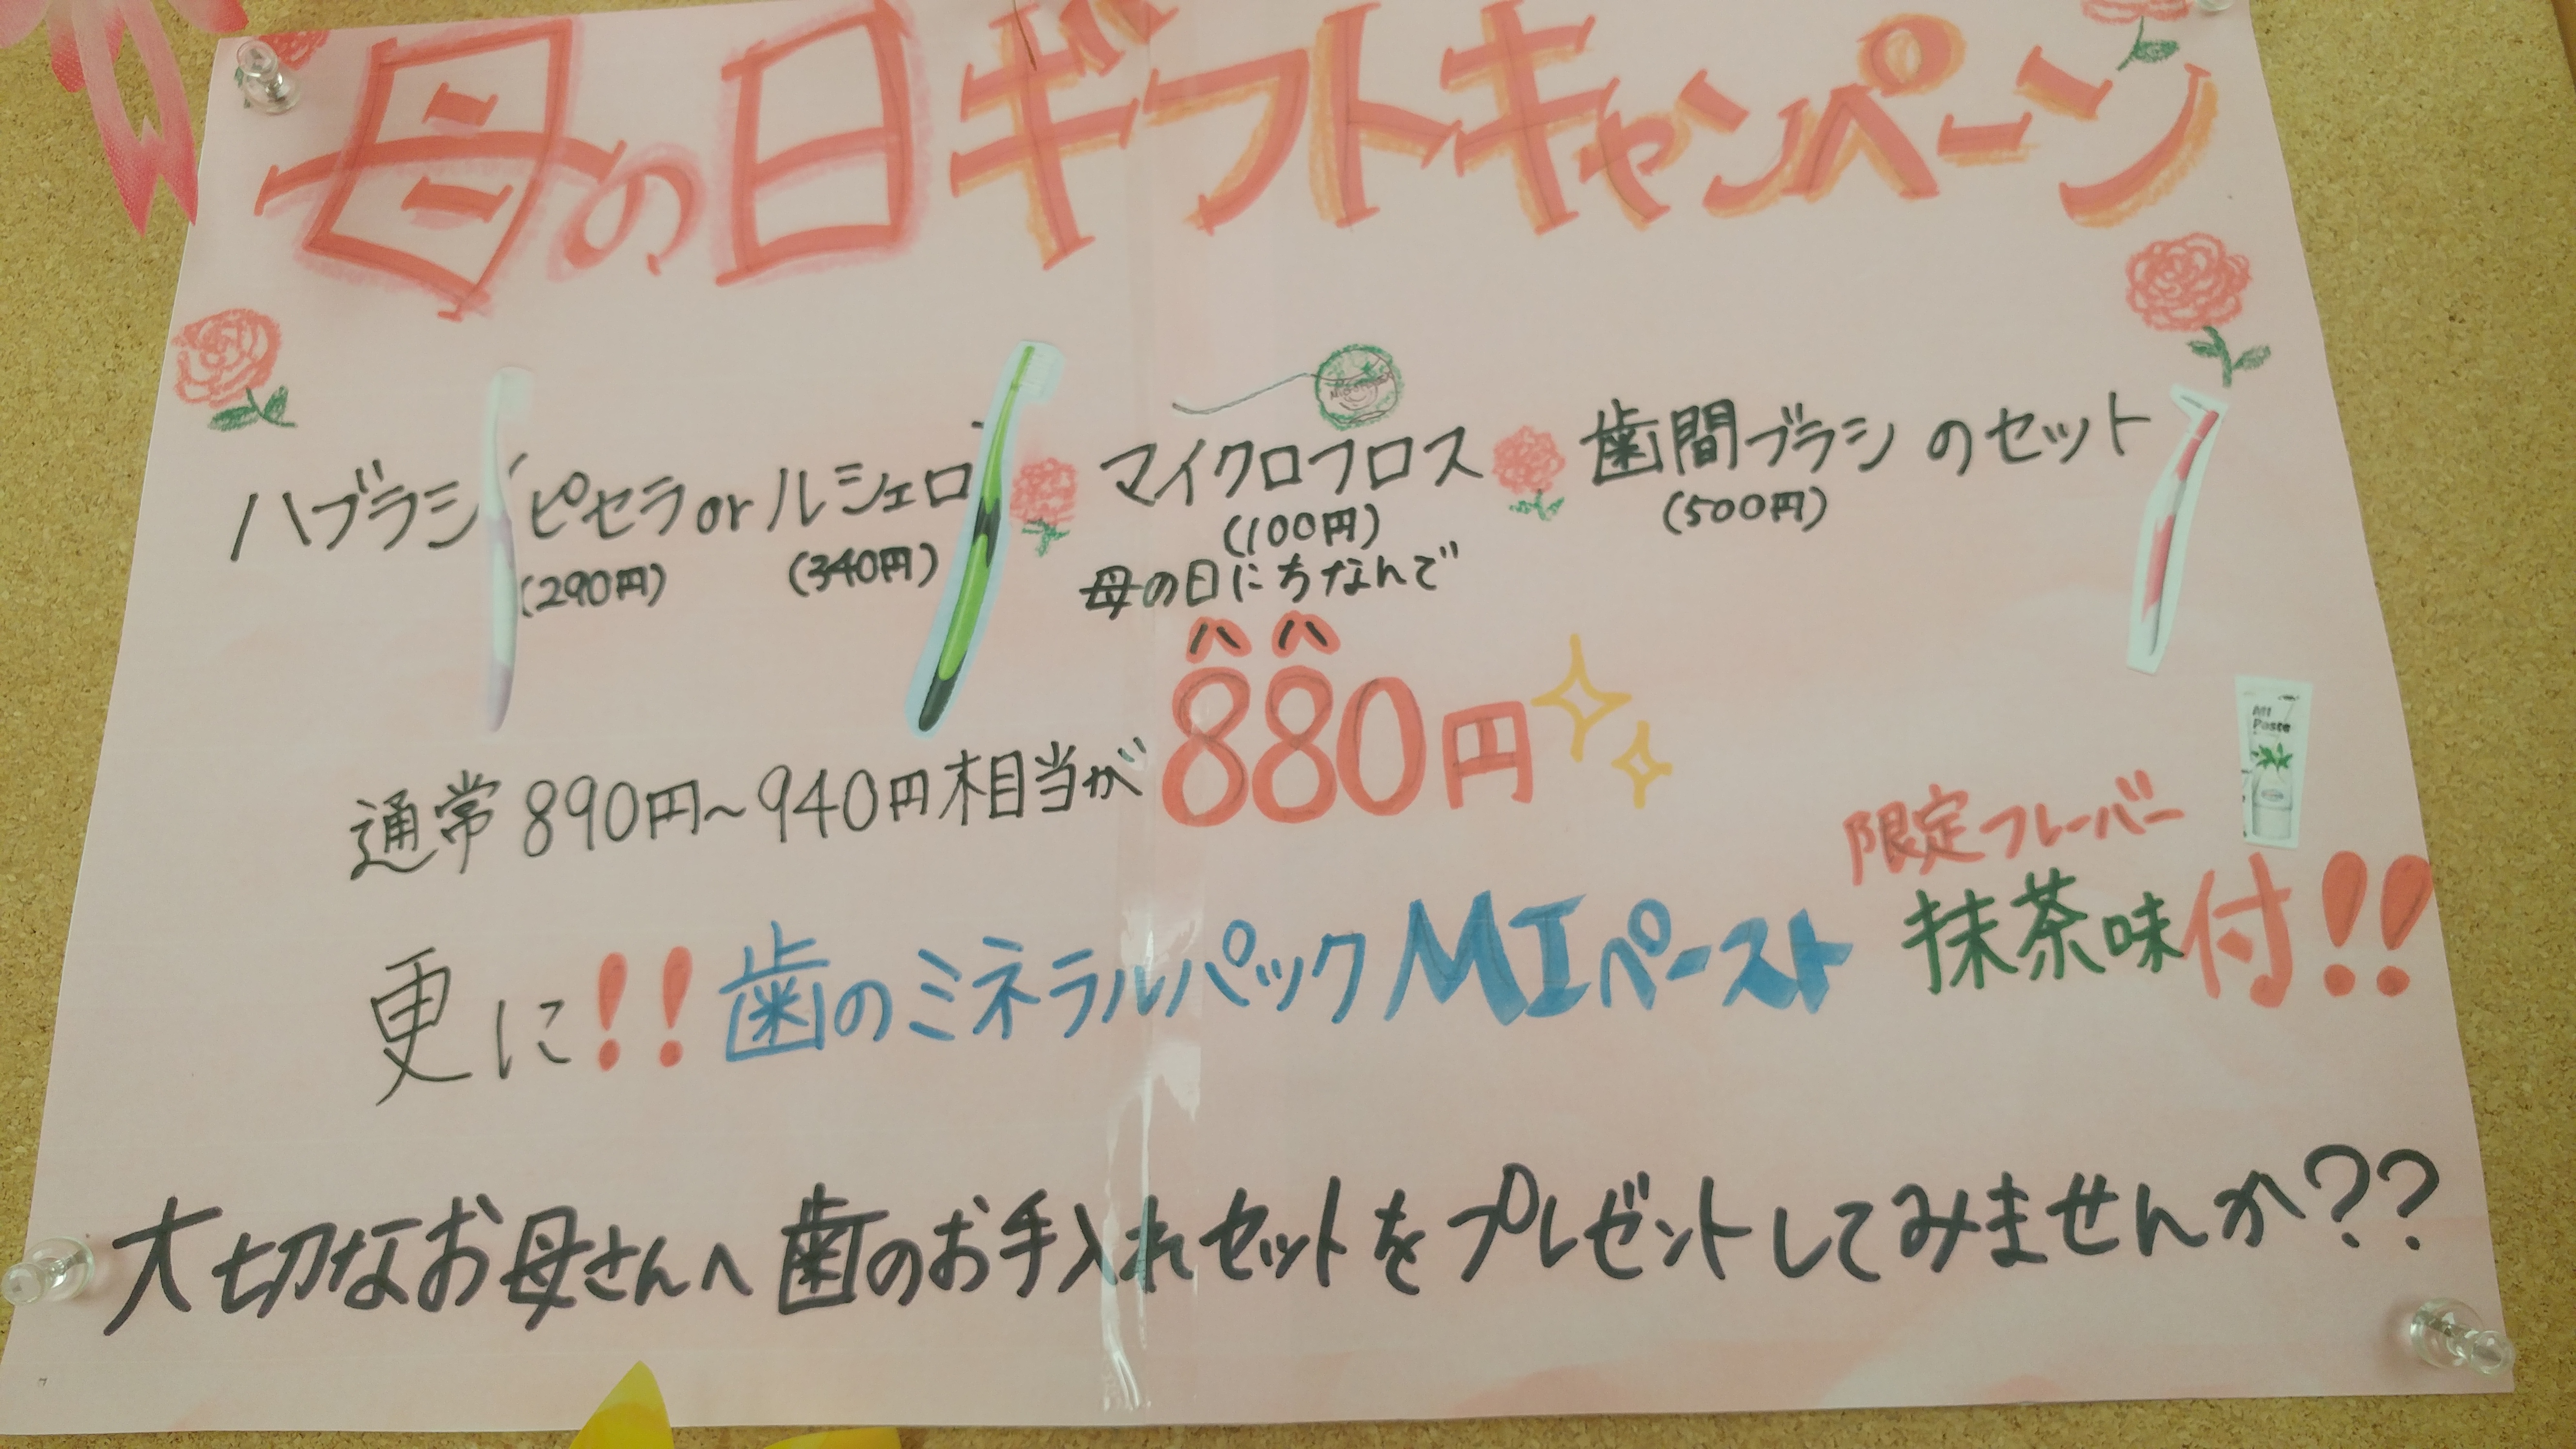 母の日ギフトキャンペーン
ハブラシ「ピセラorルシェロ」 マイクロフロス 歯間ブラシのセット
(290円) (340円) (100円) (500円)
母の日にちなんで
ハハ
通常890円~940円相当が880円
限定フレーバー
更に!!歯のミネラルパックMIペースト抹茶味付!!
MI
Paste
大切なお母さんへ歯のお手入れセットをプレゼントしてみませんか??